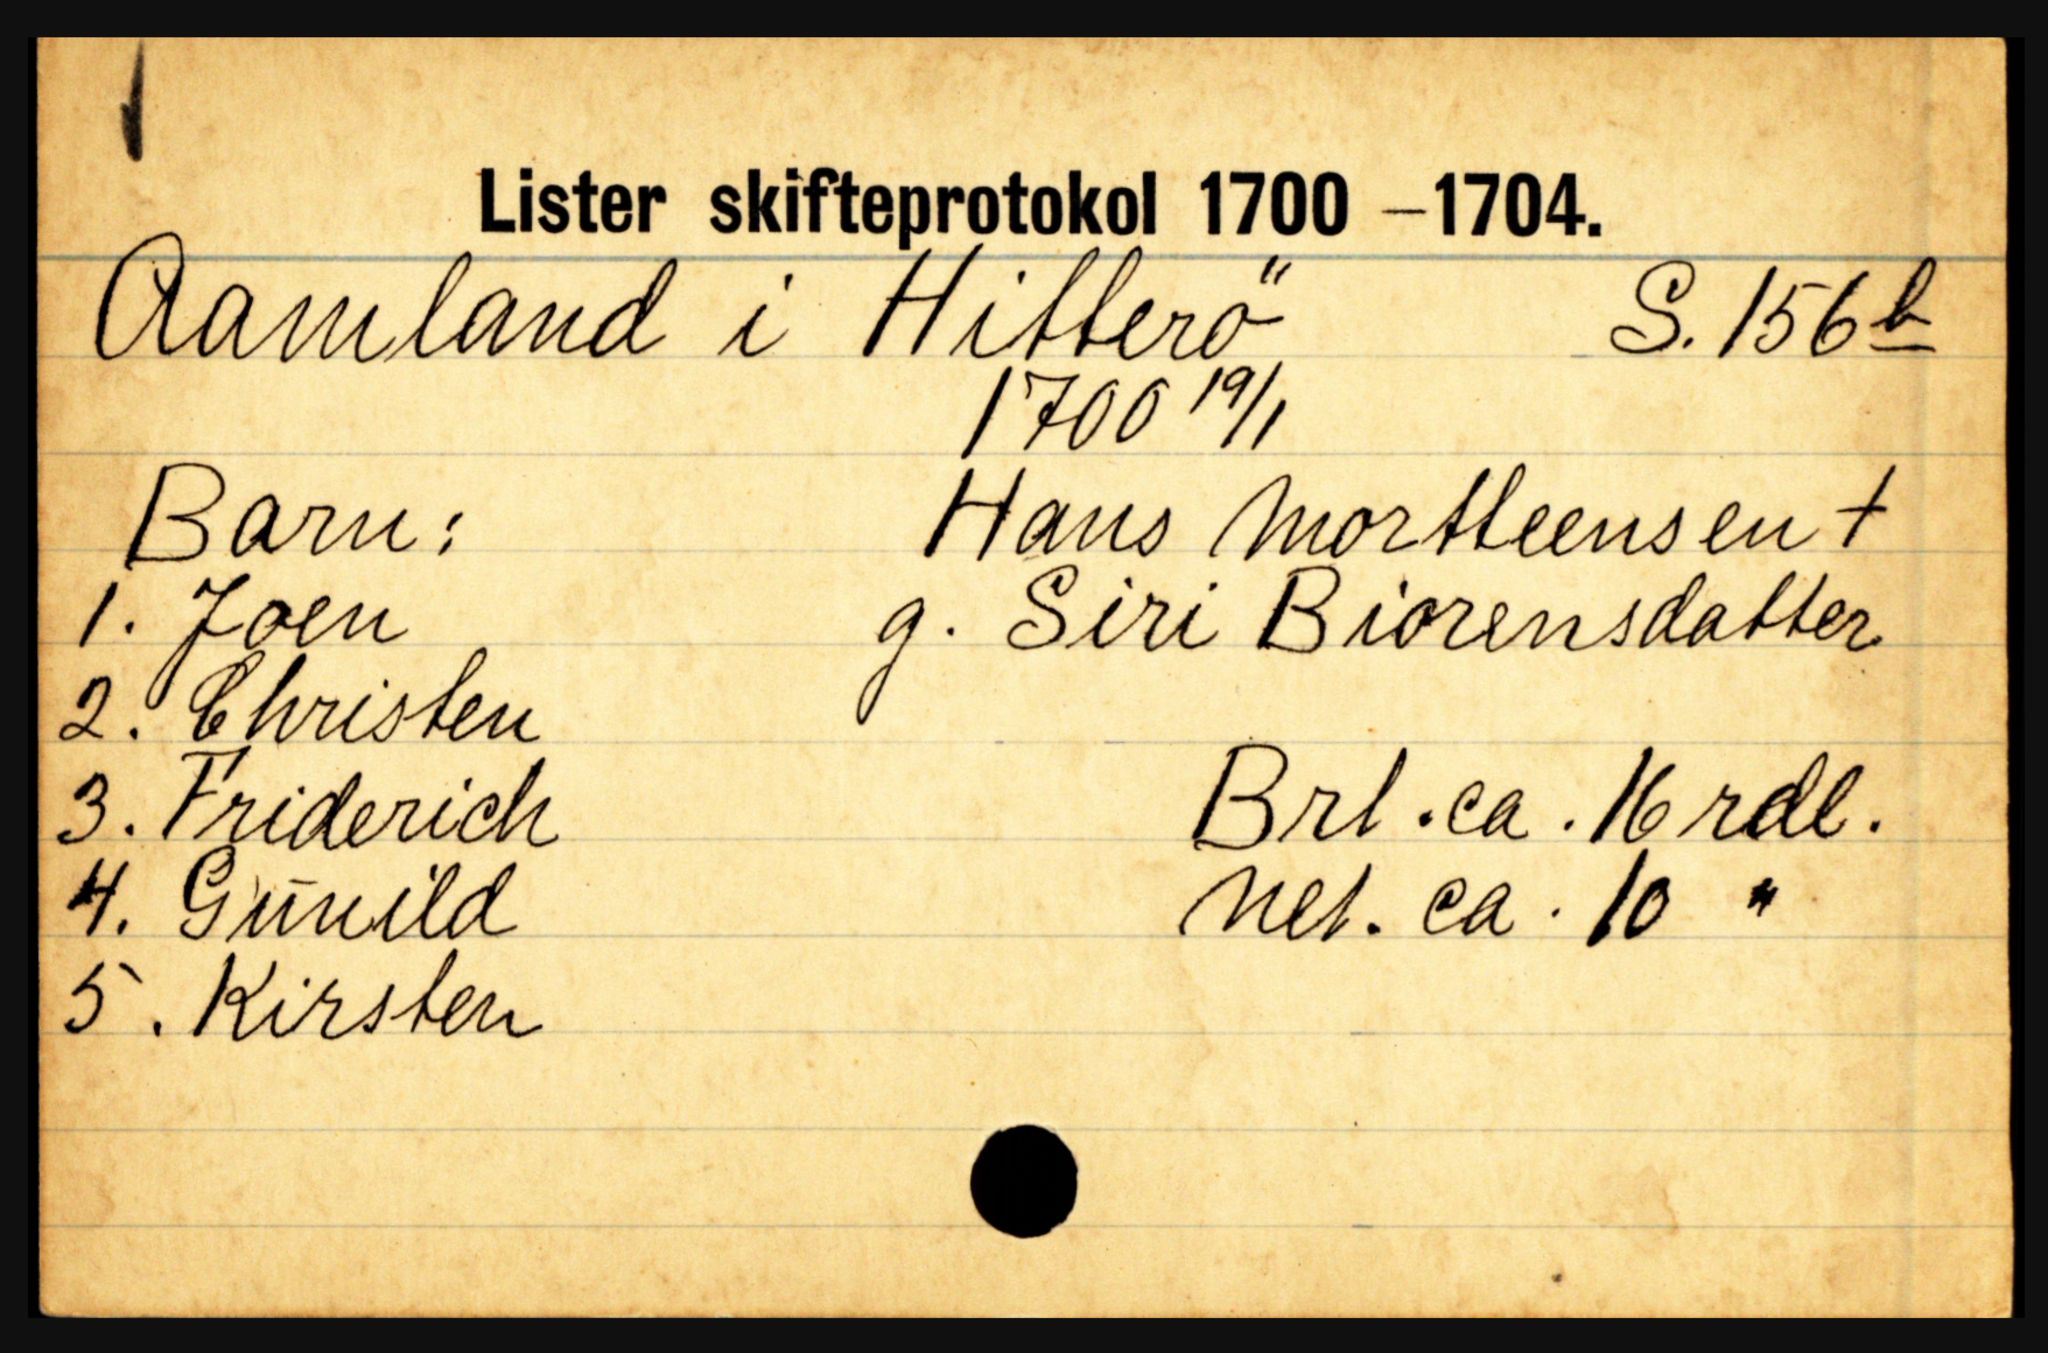 Lister skifteprotokol 1700 –1704.
Aamland i Hitterö S. 156 b
1700 19/1
Barn: Hans Mortteensen +
1. Joen g. Siri Biorensdatter
2. Christen
3. Friderich Brt. ca. 16 rdl.
4. Gunild Net. ca. 10 "
5. Kirsten